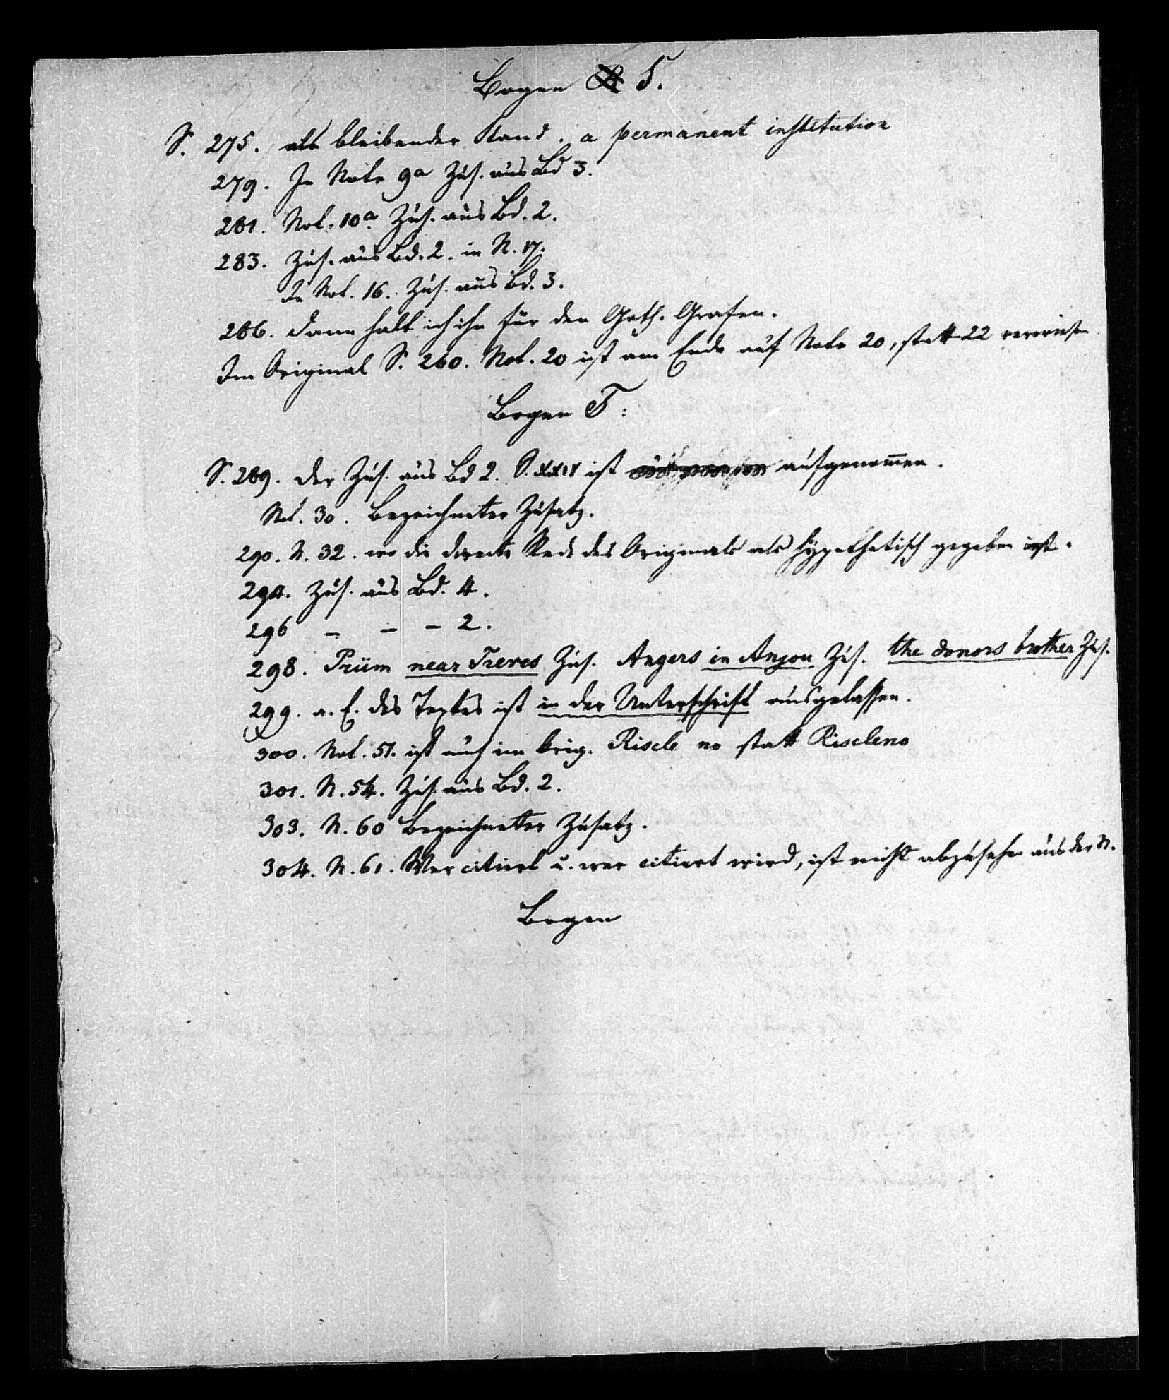 Bogen S.
S. 275. als bleibender Stand. a permanent institution
279. In Note 9a Zus. aus Bd 3.
281. Not. 10a. Zus. aus Bd. 2.
283. Zus. aus Bd. 2. in N. 17.
In Not. 16. Zus. aus Bd. 3.
286. dann halt ich ihn für den Goth. Grafen.
Im Original S. 260. Not. 20 ist am Ende auf Note 20, statt 22 verwiesen
Bogen T:
S. 289. der Zus. aus Bd 2. S. XXIV ist aufgenommen.
Not. 30. Bezeichneter Zusatz.
290. N. 32. wo die directe Rede des Originals als hypothetisch gegeben ist.
294. Zus. aus Bd. 4.
296 – – – 2.
298. Prüm near Treves Zus. Angers in Anjou Zus. the donors brother Zus.
299. a. E. des Textes ist in der Unterschrift ausgelassen.
300. Not. 51. ist auch im Orig. Riscle no statt Riscleno
301. N. 54. Zus. aus Bd. 2.
303. N. 60 Bezeichneter Zusatz.
304. N. 61. Wer citirt u. wer citirt wird, ist nicht abzusehn aus der N.
Bogen